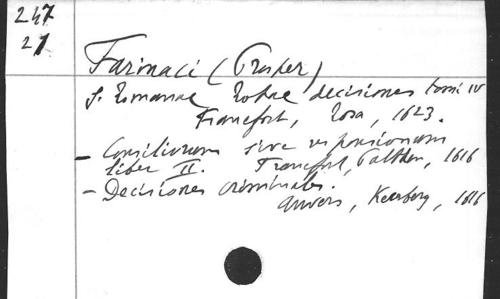 247
21
Farinaci (Prosper)
S. Romanae Rotae decisiones tomi IV
Francfort, Rosa, 1623.
- Consiliorum sive responsionum
liber II. Francfort, Palthen, 1616
- Decisiones criminales.
Anvers, Keerberg, 1616